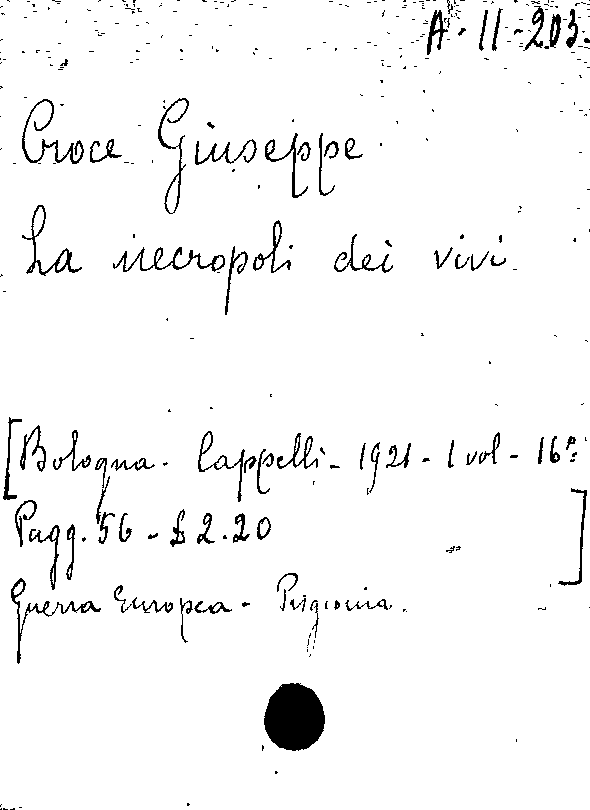 A-11-203.
Croce Giuseppe
La necropoli dei vivi
[Bologna - Cappelli - 1921 - 1 vol - 16º:
Pagg. 56 - £ 2.20 ]
Guerra Europea - Prigionia.